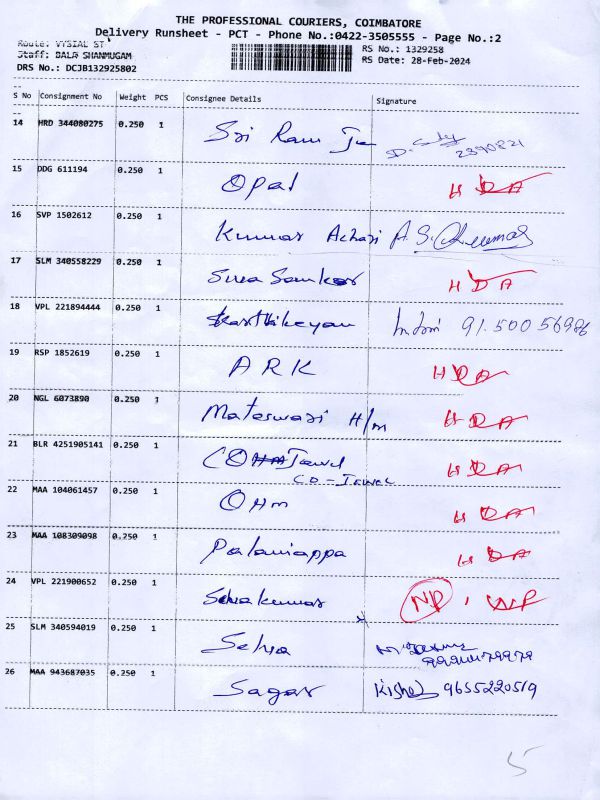 THE PROFESSIONAL COURIERS, COIMBATORE
Delivery Runsheet - PCT - Phone No.:0422-3505555 - Page No.:2
Route: VYSIAL ST
Staff: BALA SHANMUGAM
DRS No.: DCJB132925802
RS No.: 1329258
RS Date: 28-Feb-2024
S No Consignment No Weight PCS Consignee Details Signature
14 HRD 344080275 0.250 1 Sri Ram 2390821
15 DDG 611194 0.250 1 Opal H DA
16 SVP 1502612 0.250 1 Kumar Achari A.S.
17 SLM 340558229 0.250 1 Siva Sankar H DA
18 VPL 221894444 0.250 1 Karthikeyan 91.500 56986
19 RSP 1852619 0.250 1 ARK H DA
20 NGL 6073890 0.250 1 Mateswari H/m H DA
21 BLR 4251905141 0.250 1 CO Jewel H DA
CO - Jewel
22 MAA 104061457 0.250 1 OHm H DA
23 MAA 108309098 0.250 1 Palaniappa H DA
24 VPL 221900652 0.250 1 Selvakumar NP,
25 SLM 340594019 0.250 1 Selva
26 MAA 943687035 0.250 1 Sagar Kishor 9655220519
5